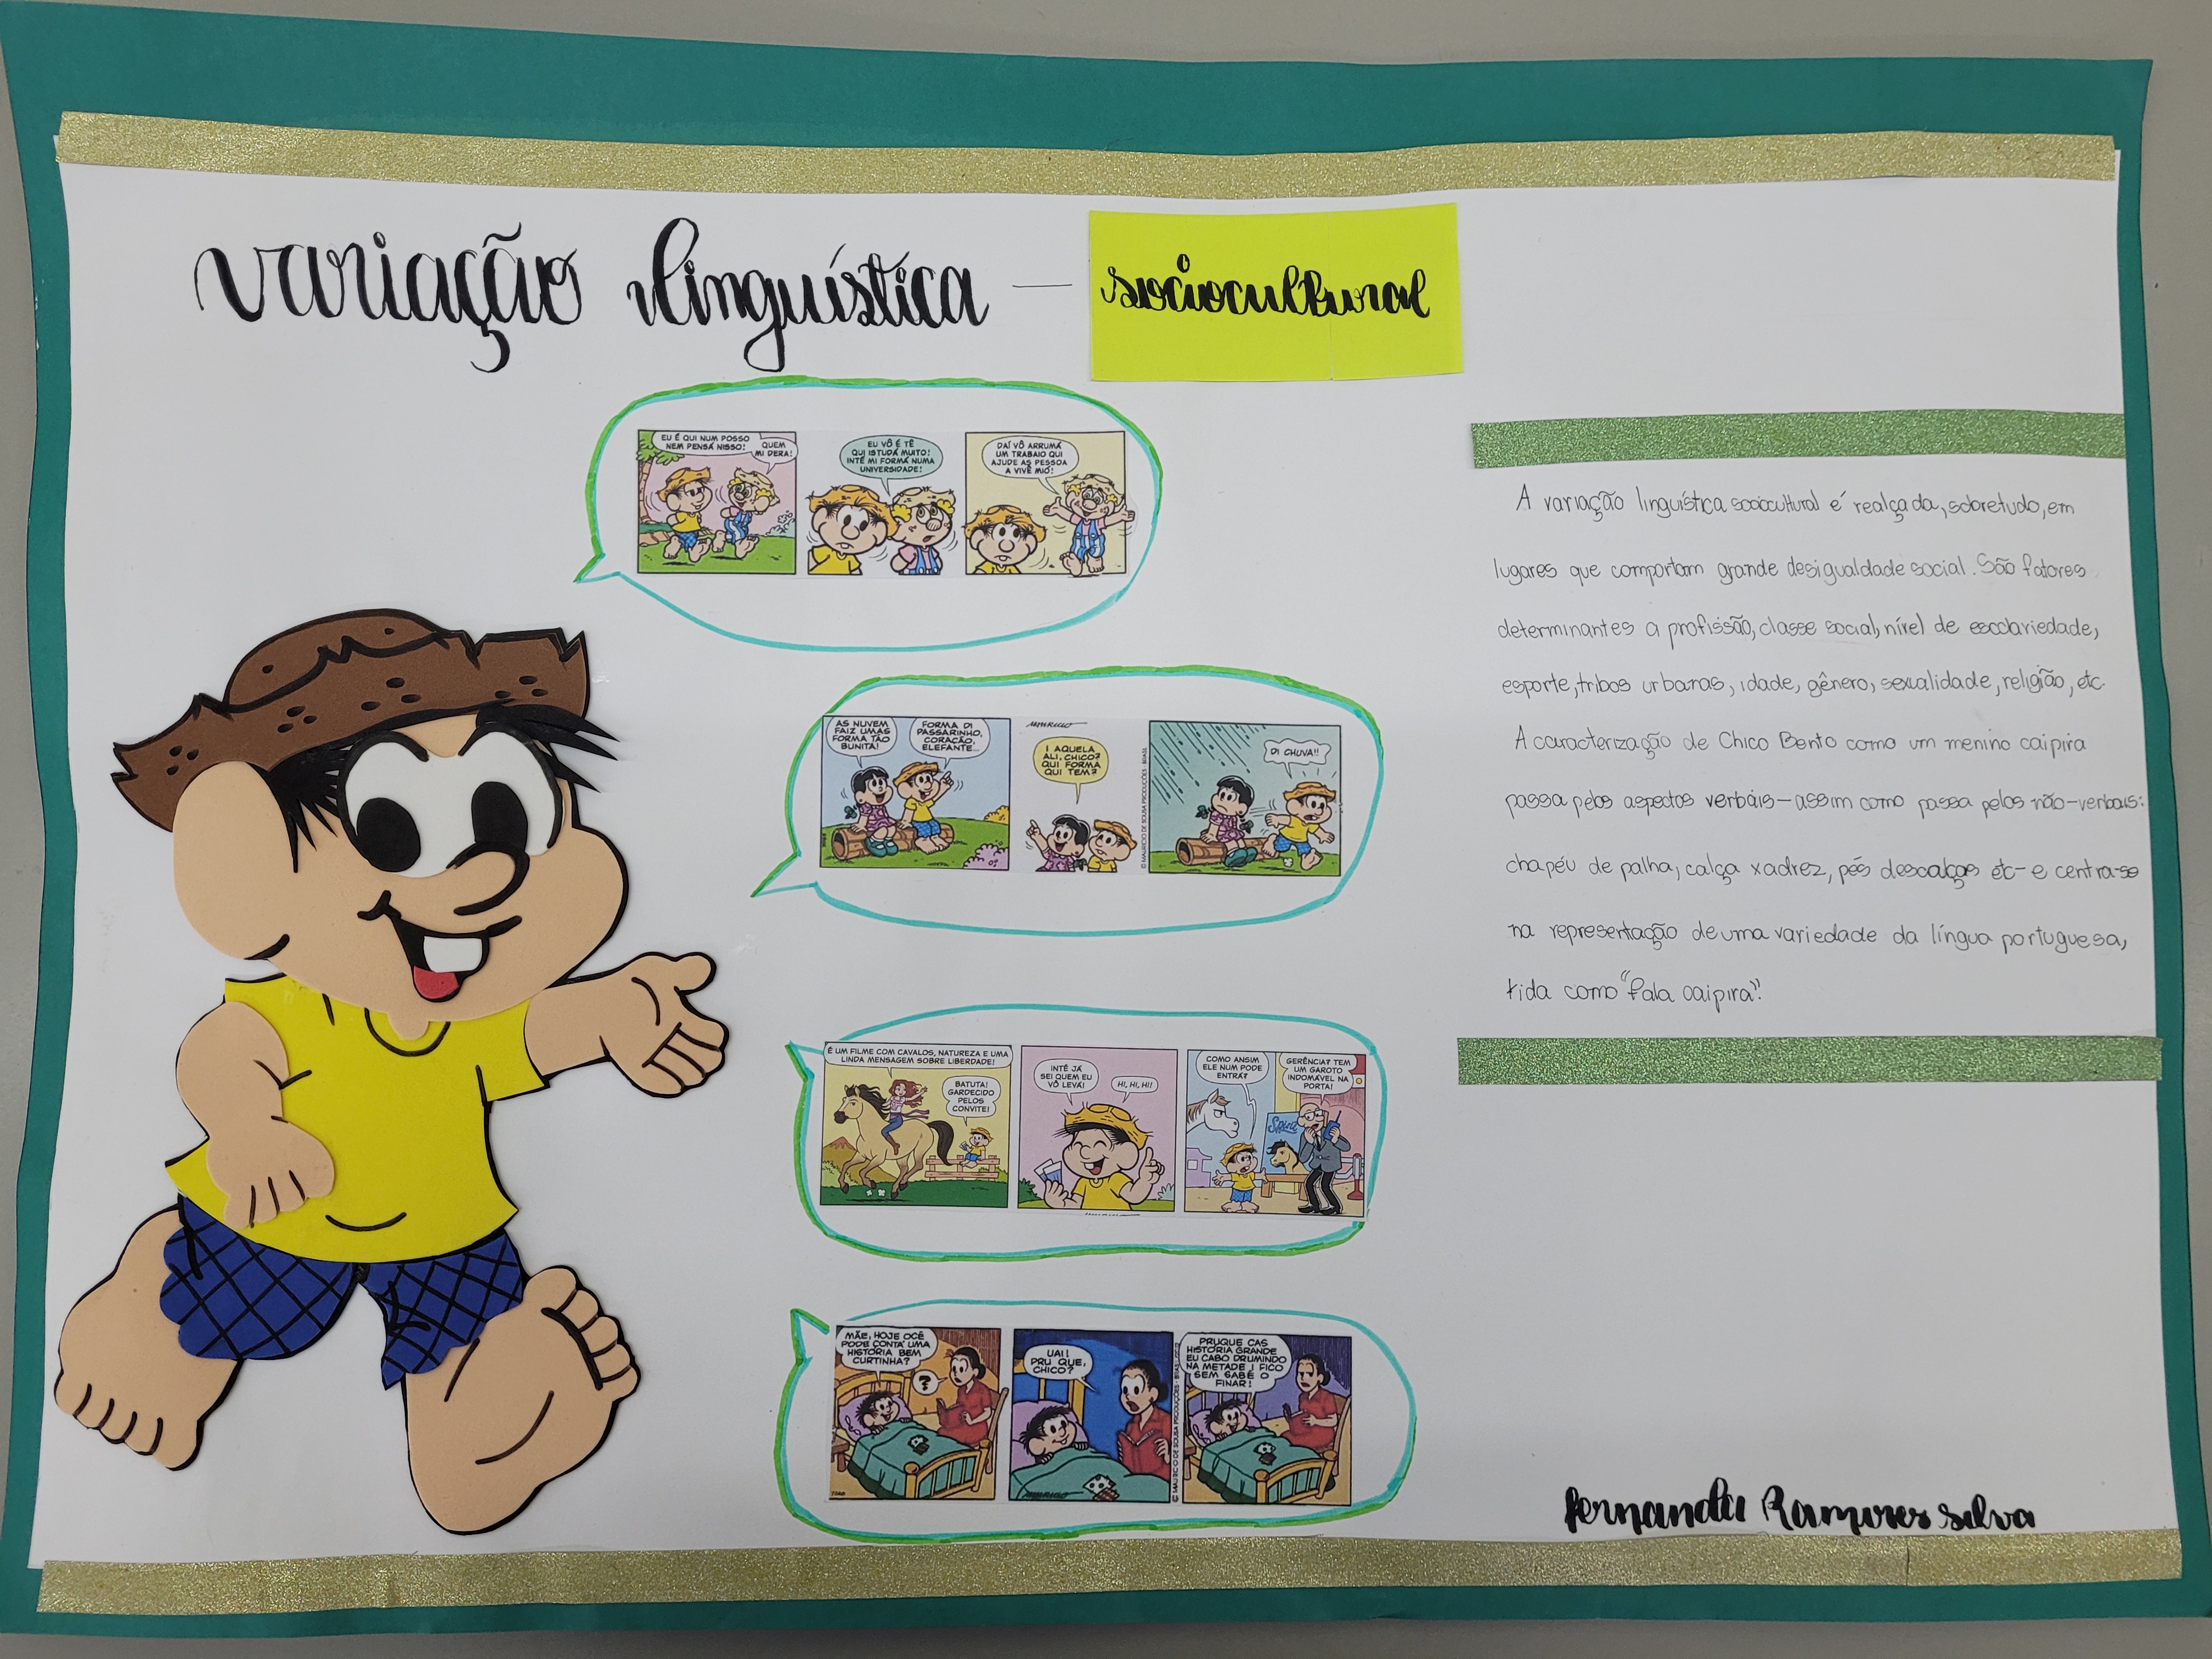 variação linguística — sociocultural
EU É QUI NUM POSSO
NEM PENSÁ NISSO!
QUEM
MI DERA!
EU VÔ É TÊ
QUI ISTUDÁ MUITO!
INTÉ MI FORMÁ NUMA
UNIVERSIDADE!
DAÍ VÔ ARRUMÁ
UM TRABAIO QUI
AJUDE AS PESSOA
A VIVÊ MIÓ!
AS NUVEM
FAIZ UMAS
FORMA TÃO
BUNITA!
FORMA DI
PASSARINHO,
CORAÇÃO,
ELEFANTE...
MAURICIO
I AQUELA
ALI, CHICO?
QUI FORMA
QUI TEM?
© MAURICIO DE SOUSA PRODUÇÕES - BRASIL
DI CHUVA!!
É UM FILME COM CAVALOS, NATUREZA E UMA
LINDA MENSAGEM SOBRE LIBERDADE!
BATUTA!
GARDECIDO
PELOS
CONVITE!
INTÉ JÁ
SEI QUEM EU
VÔ LEVÁ!
HI, HI, HI!
COMO ANSIM
ELE NUM PODE
ENTRÁ?
GERÊNCIA? TEM
UM GAROTO
INDOMÁVEL NA
PORTA!
Spirit
MÃE, HOJE OCÊ
PODE CONTÁ UMA
HISTÓRIA BEM
CURTINHA?
?
UAI!
PRU QUE,
CHICO?
MAURICIO
© MAURICIO DE SOUSA PRODUÇÕES - BRASIL
PRUQUE CAS
HISTÓRIA GRANDE
EU CABO DRUMINDO
NA METADE I FICO
SEM SABÊ O
FINAR!
A variação linguística sociocultural é realçada, sobretudo, em
lugares que comportam grande desigualdade social. São fatores
determinantes a profissão, classe social, nível de escolariedade,
esporte, tribos urbanas, idade, gênero, sexualidade, religião, etc.
A caracterização de Chico Bento como um menino caipira
passa pelos aspectos verbais - assim como passa pelos não-verbais:
chapéu de palha, calça xadrez, pés descalços etc - e centra-se
na representação de uma variedade da língua portuguesa,
tida como "fala caipira".
Fernanda Ramires Silva